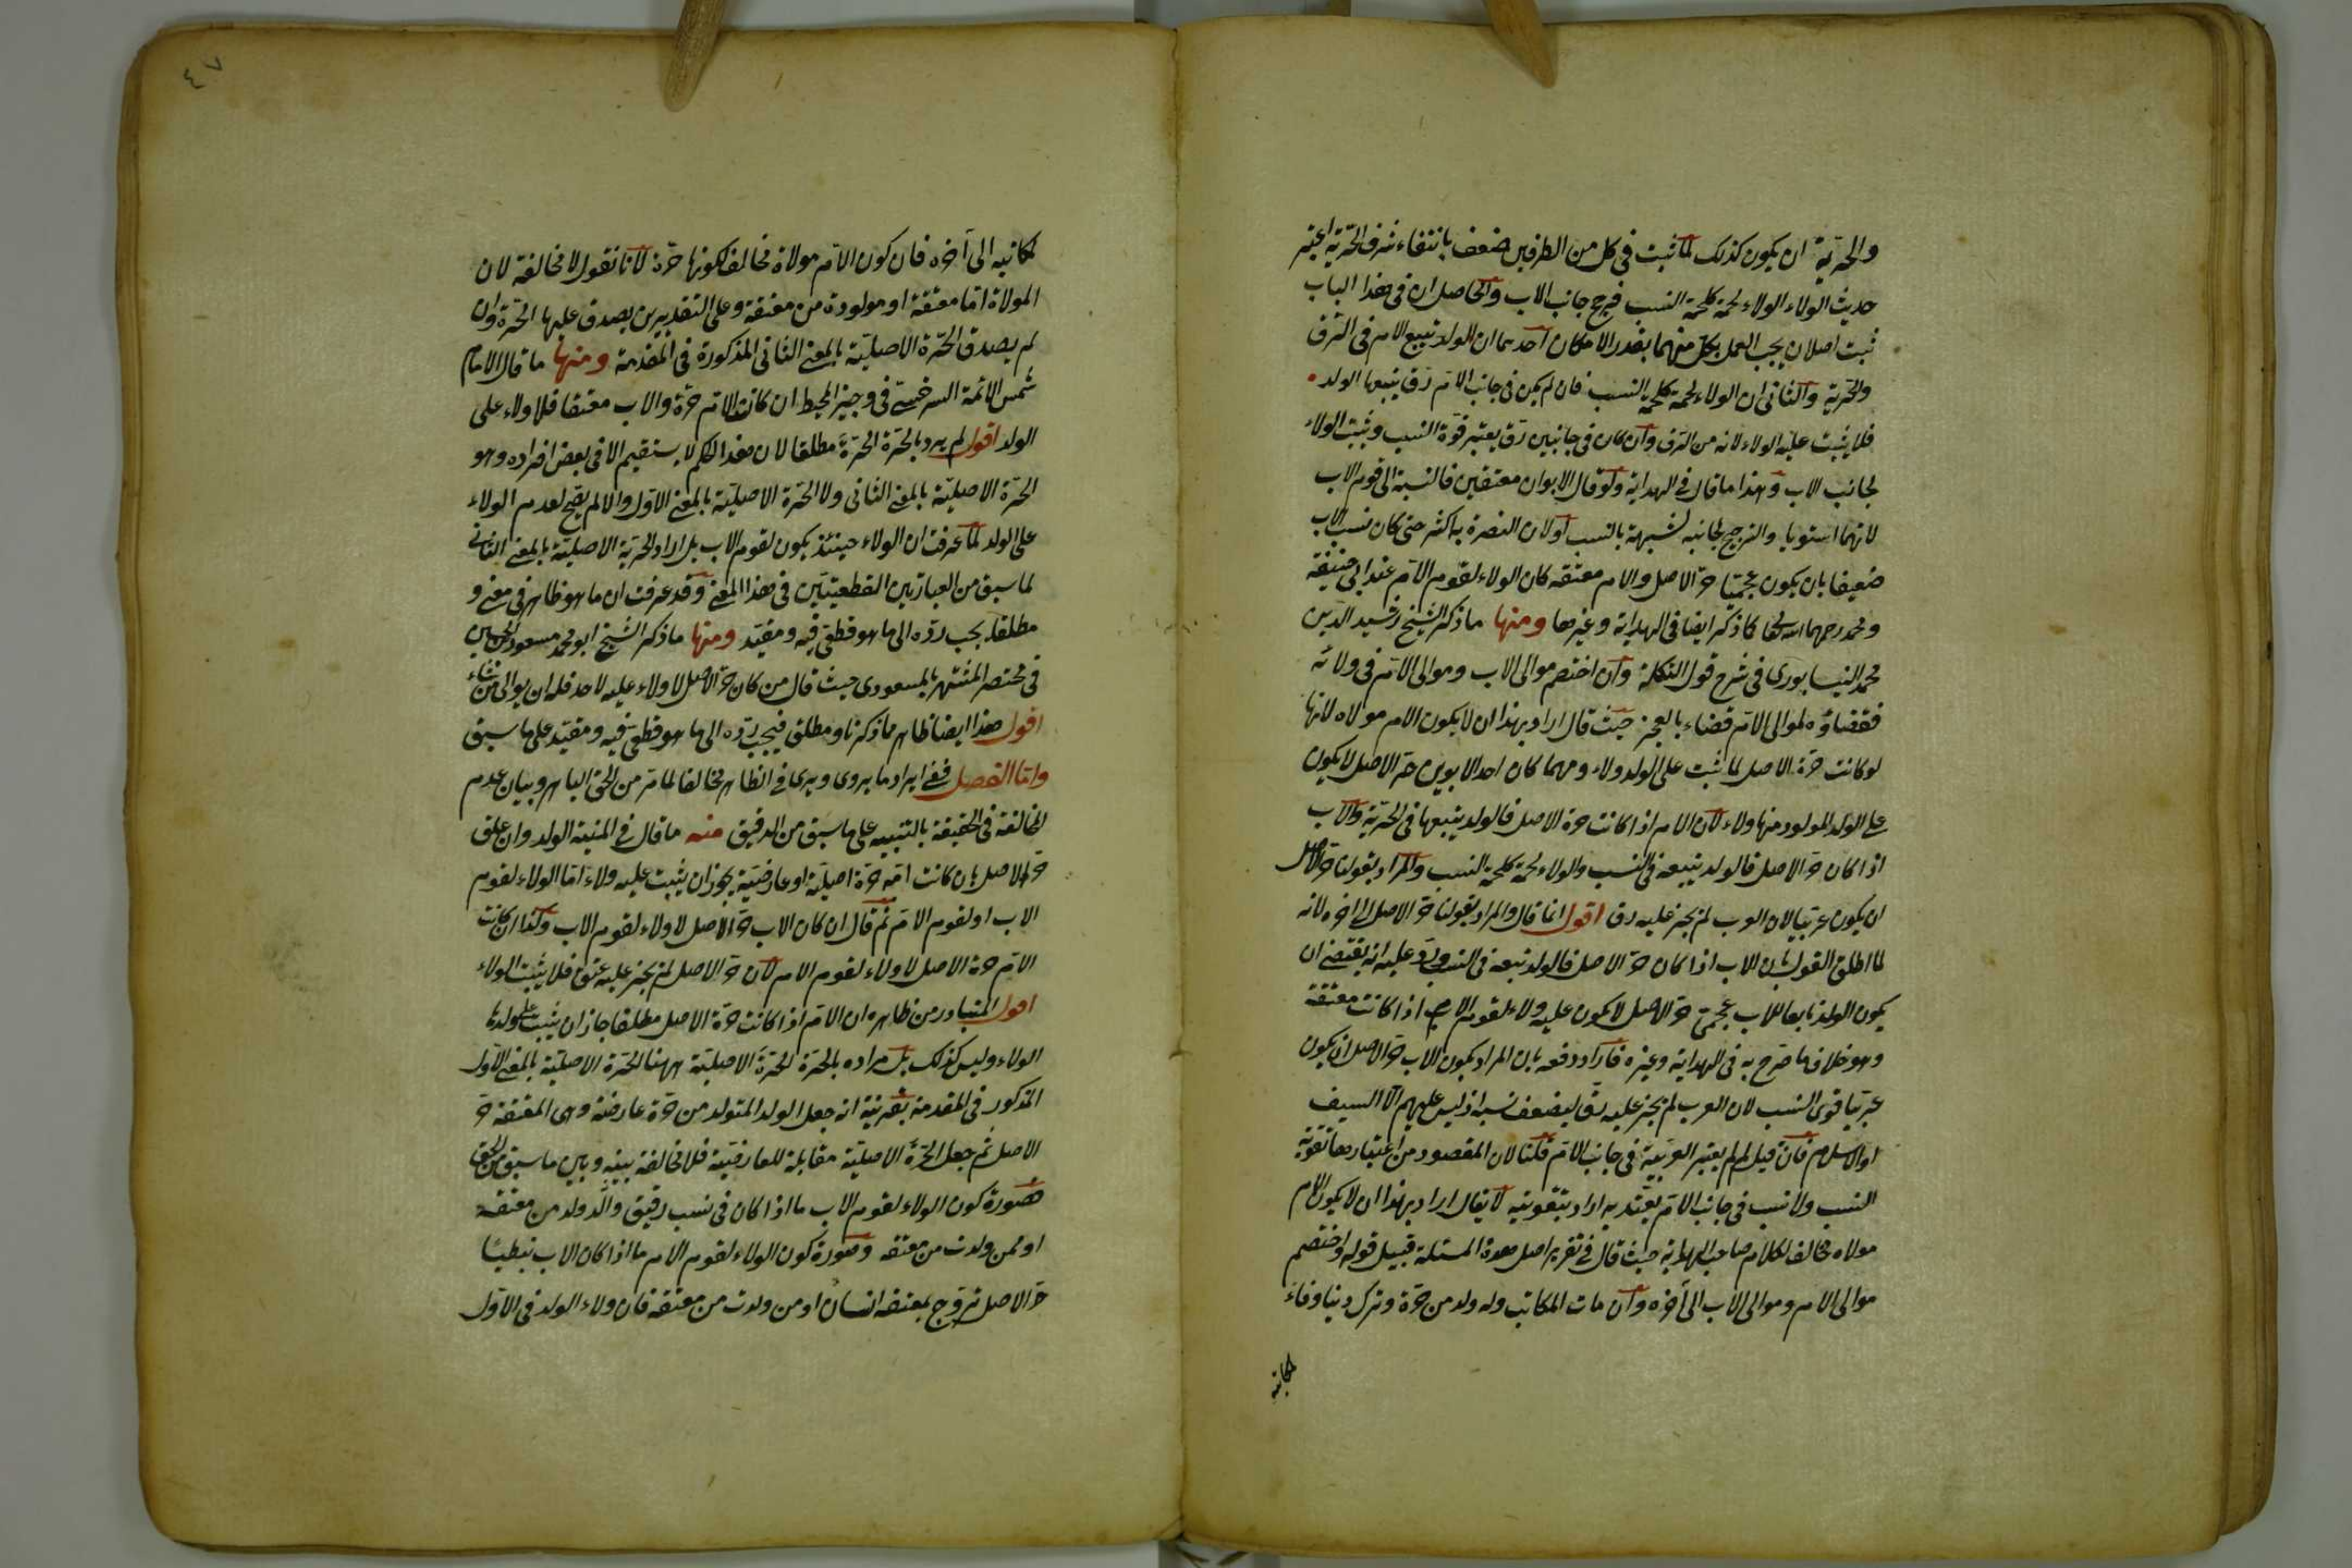 والحرية ان يكون كذلك لما ثبت في كل من الطرفين ضعف بانتفاء شرف الحرية اعتبر
حديث الولاء الولاء لحمة كلحمة النسب فرجح جانب الاب والحاصل ان في هذا الباب
ثبت اصلان يجب العمل بكل منهما بقدر الامكان احدهما ان الولد يتبع الام في الرق
والحرية والثاني ان الولاء لحمة كلحمة النسب فان لم يكن في جانب الام رق يتبعها الولد
فلا يثبت عليه الولاء لانه من الرق وان كان في جانبين رق يعتبر قوة النسب ويثبت الولاء
لجانب الاب وهذا ما قال في الهداية ولو قال الابوان معتقين فالنسبة الى قوم الاب
لانهما استويا والترجيح لجانبه لشبهه بالنسب اولان النصرة به اكثر حتى كان نسب الاب
ضعيفا بان يكون عجميا حر الاصل والام معتقه كان الولاء لقوم الام عند ابي حنيفة
ومحمد رحمهما الله كما ذكر ايضا في الهداية وغيرها ومنها ما ذكر الشيخ رشيد الدين
محمد النيسابوري في شرح قول التكملة وان اختصم موالي الاب وموالي الام في ولائه
فقضاؤه لموالي الام قضاء بالعجز حيث قال اراد بهذا ان لا يكون الام مولاه لانها
لو كانت حرة الاصل لما ثبت على الولد ولاء ومهما كان احد الابوين حر الاصل لا يكون
على الولد المولود منها ولاء لان الام اذا كانت حرة الاصل فالولد يتبعها في الحرية والاب
اذا كان حر الاصل فالولد يتبعه في النسب والولاء لحمة كلحمة النسب والمراد بقولنا حر الاصل
ان يكون عربيا لان العرب لم يجز عليه رق اقول انما قال والمراد بقولنا حر الاصل الى اخره لانه
لما اطلق القول بان الاب اذا كان حر الاصل فالولد تبعه في النسب ورد عليه انه يقتضي ان
يكون الولد تابعا للاب عجمي حر الاصل لا يكون عليه ولاء لقوم الام اذا كانت معتقة
وهو خلاف ما صرح به في الهداية وغيره فاراد دفعه بان المراد بكون الاب حر الاصل ان يكون
عربيا قوي النسب لان العرب لم يجز عليه رق ليضعف نسبه اذ ليس عليهم الا السيف
او الاسلام فان قيل لم لم يعتبر العربية في جانب الام قلنا لان المقصود من اعتبارها تقوية
النسب ولا نسب في جانب الام يعتد به اراد بتقويته لا يقال اراد بهذا ان لا يكون الام
مولاه مخالف لكلام صاحب الهداية حيث قال في تقرير اصل هذه المسئلة قبيل قوله واختصم
موالي الام وموالي الاب الى اخره وان مات المكاتب وله ولد من حرة وترك دينا وفاء
لمكاتبه
٤٧
لمكاتبه الى آخره فان كون الام مولاة مخالف لكونها حرة لانا نقول لا مخالفة لان
المولاة اما معتقة او مولودة من معتقة وعلى التقديرين يصدق عليها الحرة وان
لم يصدق الحرة الاصلية بالمعنى الثاني المذكورة في المقدمة ومنها ما قال الامام
شمس الائمة السرخسي في وجيز المحيط ان كانت الام حرة والاب معتقا فلا ولاء على
الولد اقول لم يرد بالحرة الحرة مطلقا لان هذا الحكم لا يستقيم الا في بعض افراده وهو
الحرة الاصلية بالمعنى الثاني ولا الحرة الاصلية بالمعنى الاول والا لم يصح لعدم الولاء
على الولد لما عرفت ان الولاء حينئذ يكون لقوم الاب بل اراد الحرية الاصلية بالمعنى الثاني
لما سبق من العبارتين القطعيتين في هذا المعنى وقد عرفت ان ما هو ظاهر في معنى و
مطلقا يجب رده الى ما هو قطعي فيه ومقيد ومنها ما ذكر الشيخ ابو محمد مسعود بن الحسين
في مختصر المشتهر بالمسعودي حيث قال من كان حر الاصل لا ولاء عليه لاحد فله ان يوالي من شاء
اقول هذا ايضا ظاهر مما ذكرنا ومطلق فيجب رده الى ما هو قطعي فيه ومقيد على ما سبق
واما الفصل ففي ايراد ما يروى ويرى في الظاهر مخالفا لما مر من الحق الباهر وبيان عدم
المخالفة في الحقيقة بالتنبيه على ما سبق من الدقيق منه ما قال في المنية الولد وان علق
حر الاصل بان كانت امه حرة اصلية او عارضية يجوز ان يثبت عليه ولاء اما الولاء لقوم
الاب او لقوم الام ثم قال ان كان الاب حر الاصل لا ولاء لقوم الاب وكذا ان كانت
الام حرة الاصل لا ولاء لقوم الام لان حر الاصل لم يجز عليه عتق فلا يثبت الولاء
اقول المتبادر من ظاهره ان الام اذا كانت حرة الاصل مطلقا جاز ان يثبت على ولدها
الولاء وليس كذلك بل مراده بالحرة الحرة الاصلية ههنا الحرة الاصلية بالمعنى الاول
المذكور في المقدمة بقرينة انه جعل الولد المتولد من حرة عارضة وهي المعتقة حر
الاصل ثم جعل الحرة الاصلية مقابلة للعارضية فلا مخالفة بينه وبين ما سبق من الحق
صورة كون الولاء لقوم الاب ما اذا كان في نسب رقيق والد ولد من معتقة
او ممن ولدت من معتقه وصورة كون الولاء لقوم الام ما اذا كان الاب نبطيا
حر الاصل تزوج بمعتقه انسان او من ولدت من معتقه فان ولاء الولد في الاول